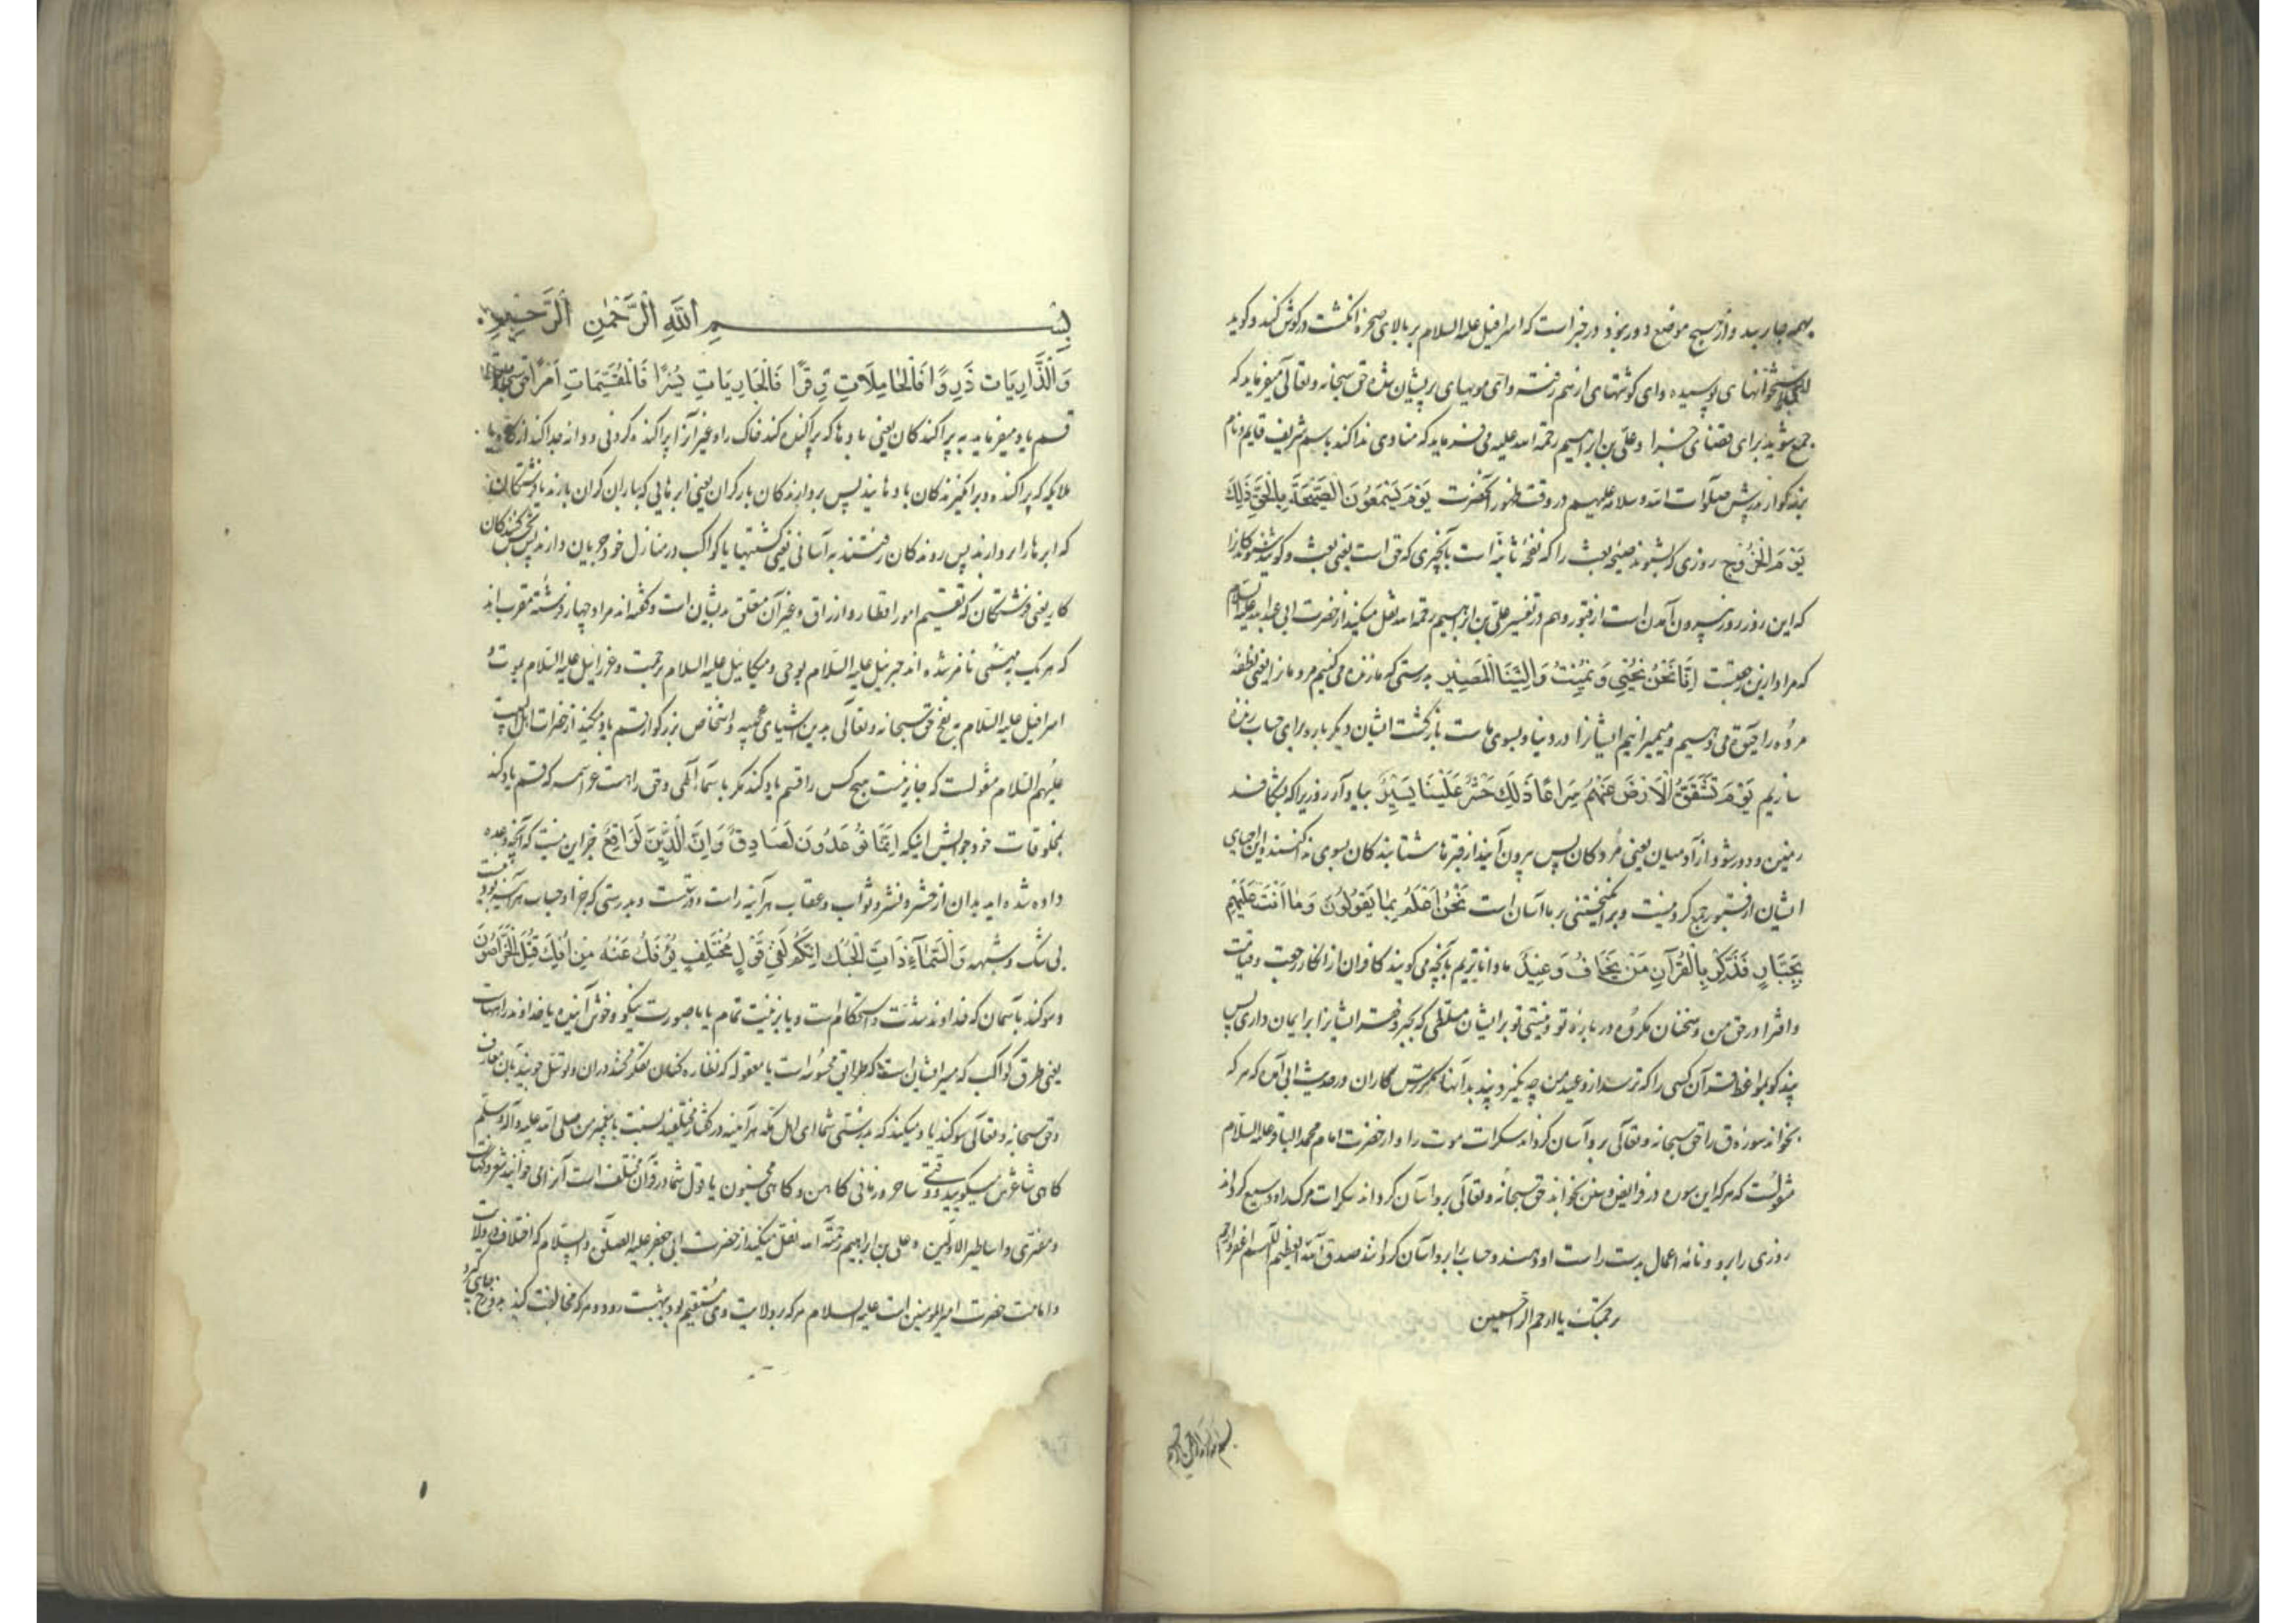 بهمه جا رسد و از هیچ موضع دور نبود و در خبر است که اسرافیل علیه السلام بر بالای صخره انگشت در گوش کند و گوید
استخوانهای پوسیده وای گوشتهای از هم رفته وای مویهای پریشان شده حق سبحانه و تعالی میفرماید که
جمع شوید برای قضای خدا و علی بن ابراهیم رحمة الله علیه می فرماید که منادی ندا کند باسم شریف قایم و نام
بزرگوار پدرش صلوات الله و سلامه علیهم در وقت ظهور آنحضرت یَوْمَ یَسْمَعُونَ الصَّیْحَةَ بِالْحَقِّ ذٰلِكَ
یَوْمُ الْخُرُوجِ روزی که بشنوند صیحه بعث را که نفخه ثانیه است بآنچیزی که حق است یعنی بعث و گوید
که این روز روز بیرون آمدن است از قبور و هم در تفسیر علی بن ابراهیم رحمه الله نقل میکند از حضرت ابی عبدالله علیه السلام
که مراد ازین رجعتست اِنَّا نَحْنُ نُحْیِي وَنُمِیْتُ وَاِلَیْنَا الْمَصِیْرُ بدرستی که ما زنده می کنیم مرده را یعنی نطفه
مرده را حیوة می دهیم و میمیرانیم ایشانرا در دنیا و بسوی ماست بازگشت ایشان دیگر باره برای حساب زنده
سازیم یَوْمَ تَشَقَّقُ الْاَرْضُ عَنْهُمْ سِرَاعًا ذٰلِكَ حَشْرٌ عَلَیْنَا یَسِیْرٌ بیاد آر روزیرا که بشکافد
زمین و دور شود از آدمیان یعنی مردگان پس بیرون آیند از قبرها شتابندگان بسوی این احیای
ایشان از قبور جمع کردنیست و برانگیختنی بر ما آسان است نَحْنُ اَعْلَمُ بِمَا یَقُوْلُوْنَ وَمَا اَنْتَ عَلَیْهِمْ
بِجَبَّارٍ فَذَكِّرْ بِالْقُرْآنِ مَنْ یَخَافُ وَعِیْدِ ما داناتریم بآنچه می گویند کافران از انکار رجعت و قیامت
و افترا در حق من و سخنان مکروه در باره تو و نیستی تو بر ایشان مسلطی که بجبر و قهر ایشانرا بر ایمان داری پس
پند گو بمواعظ قرآن کسی را که ترسد از وعید من چه و در حدیث ابی آمده که هر که
بخواند سوره ق را حق سبحانه و تعالی بر و آسان گرداند سکرات موت را و از حضرت امام محمد الباقر علیه السلام
منقولست که هر که این سوره در فرایض و سنن بخواند حق سبحانه و تعالی بر و آسان گرداند سکرات مرگ را و وسیع گرداند
روزی را بر و و نامه اعمال بدست راست او دهند و حساب را بر و آسان گردانند صدق الله العظیم اللهم اغفر وارحم
برحمتک یا ارحم الراحمین
بسم الله الرحمن الرحیم
بِسْمِ اللّٰهِ الرَّحْمٰنِ الرَّحِیْمِ
وَالذَّارِیَاتِ ذَرْوًا فَالْحَامِلَاتِ وِقْرًا فَالْجَارِیَاتِ یُسْرًا فَالْمُقَسِّمَاتِ اَمْرًا حق سبحانه
قسم یاد میفرماید به پراکندگان یعنی بادها که پراکنده کنند خاک را و غیر آنرا پراکنده کردنی و دانه جدا کند از کاه
ملایکه که پراکنده و برانگیزندگان بادهایند پس بردارندگان بار گران یعنی ابرهایی که باران گران بارند یا فرشتگانند
که ابرها را بردارند پس روندگان رفتند به آسانی یعنی کشتیها یا کواکب در منازل خود جریان دارند پس بخش کنندگان
کار یعنی فرشتگان که تقسیم امور اقطار و ارزاق و غیر آن متعلق بدیشان است و گفته اند مراد چهار فرشته مقرب اند
که هر یک به مهمی نامزد شده اند جبرئیل علیه السلام بوحی و میکائیل علیه السلام برحمت و عزرائیل علیه السلام بموت و
اسرافیل علیه السلام به نفخ حق سبحانه و تعالی بدین اشیای عجیبه و اشخاص بزرگوار قسم یاد میکند از حضرات اهل البیت
علیهم السلام منقولست که جایز نیست هیچ کس را قسم یاد کند مگر باسماء آلهی و حق راست عز اسمه که قسم یاد کند
بمخلوقات خود جوابش اینکه اِنَّمَا تُوْعَدُوْنَ لَصَادِقٌ وَاِنَّ الدِّیْنَ لَوَاقِعٌ جز این نیست که آنچه وعده
داده شده اید بدان از حشر و نشر و ثواب و عقاب هر آینه راست و درست و بدرستی که جزا و حساب هر آینه بودنیست
بی شک و شبهه وَالسَّمَآءِ ذَاتِ الْحُبُكِ اِنَّكُمْ لَفِيْ قَوْلٍ مُخْتَلِفٍ یُؤْفَكُ عَنْهُ مَنْ اُفِكَ قُتِلَ الْخَرَّاصُوْنَ
و سوگند بآسمان که خداوند شدت و استحکام است و یا بزینت تمام یا با صورت نیکو و خوش آینده یا خداوند راههاست
یعنی طرق کواکب که مسیر ایشان است که طرایق محسوسه است یا معقوله که نظاره کنان
و حق سبحانه و تعالی سوگند یاد میکند که بدرستی شما ای اهل مکه هر آینه در گفتار مختلفید نسبت با پیغمبر من صلی الله علیه وآله وسلم
گاهی شاعرش میگویید و وقتی ساحر و زمانی کاهن و گاهی مجنون یا قول شما در قرآن مختلف است آنرا می خوانید شعر و کهانت
و مفتری و اساطیر الاولین و علی بن ابراهیم رحمة الله نقل میکند از حضرت ابی جعفر علیه الصلوة والسلام که اختلاف در ولایت
و امامت حضرت امیرالمومنین است علیه السلام هر که بر ولایت وی مستقیم بود ببهشت رود و هر که مخالفت کند بدوزخ جای گیرد